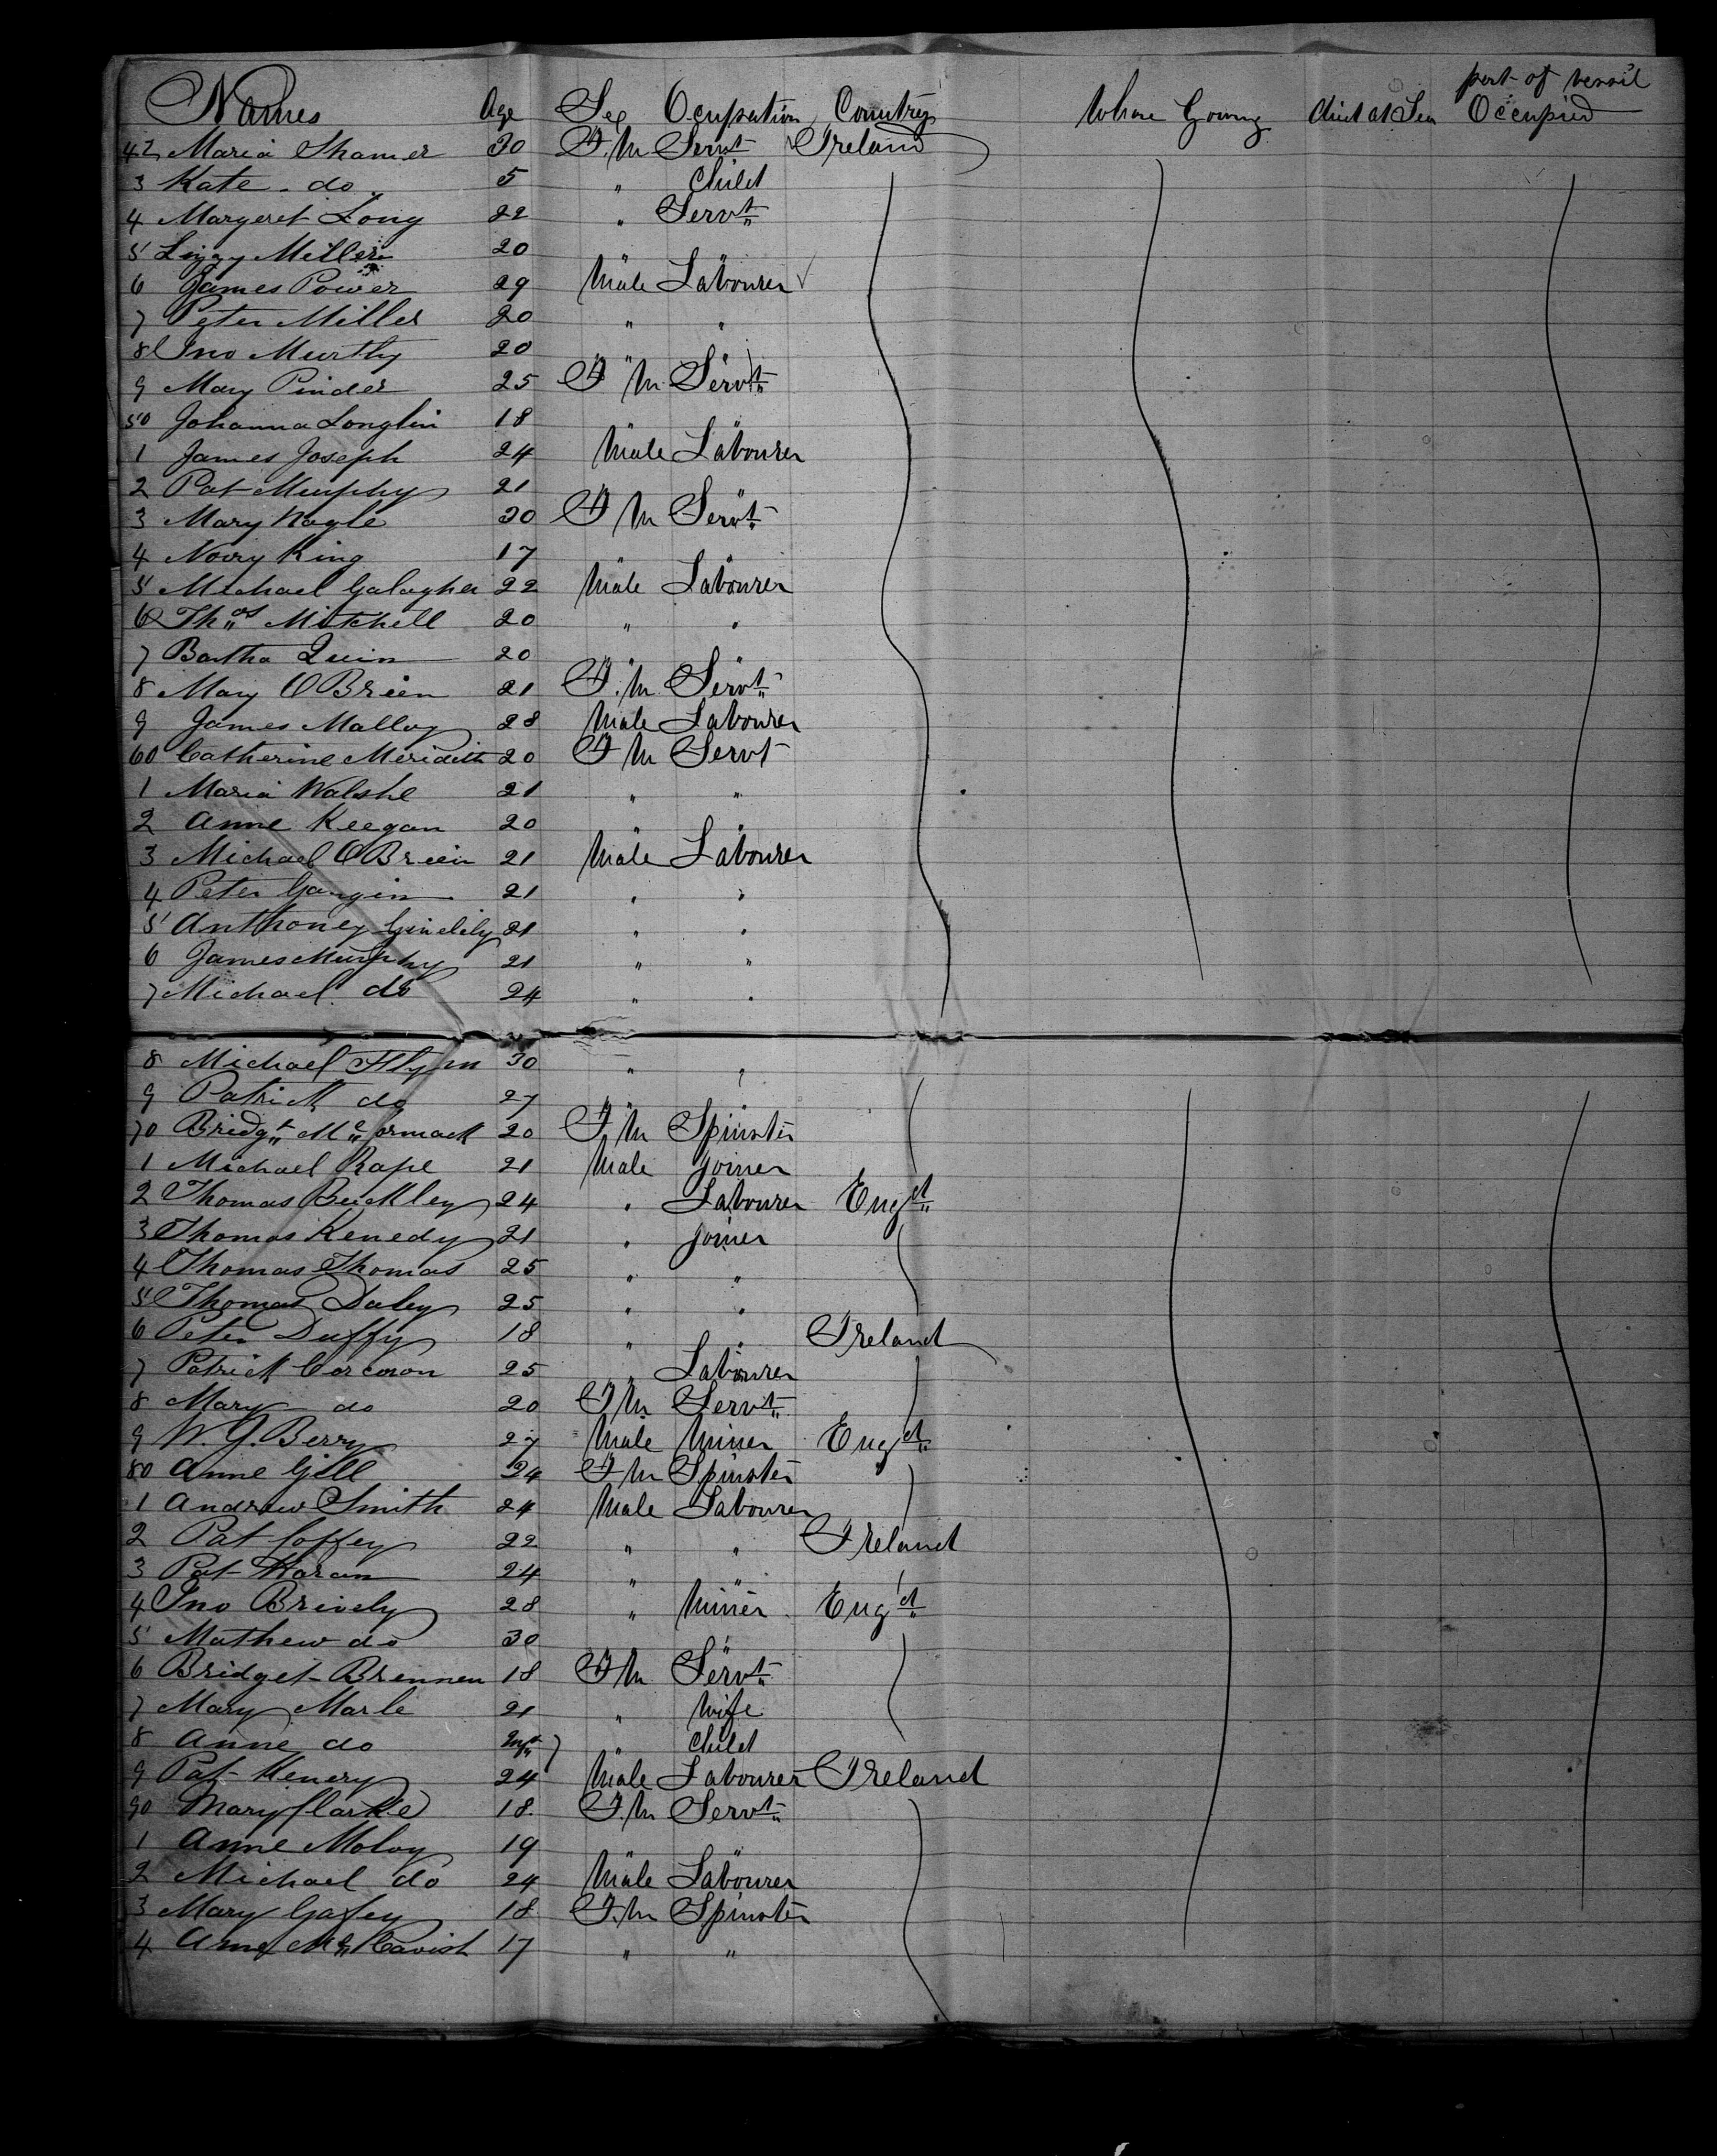 Names Age Sex Ocupation Country Whare Going died at Sea part of vessil Occupied
42 Maria Shamer 30 F.M Servt Ireland
3 Kate do 5 " Child
4 Margeret Long 22 " Servt
5 Lizzy Miller 20 " "
6 James Power 29 Male Labourer
7 Peter Miller 20 " "
8 Jno Murthy 20 " "
9 Mary Pinder 25 F M Servt
50 Johanna Longlin 18 " "
1 James Joseph 24 Male Labourer
2 Pat Murphy 21 " "
3 Mary Nagle 30 F M Servt
4 Novry King 17 " "
5 Michael Galagher 22 Male Labourer
6 Thos Mitchell 20 " "
7 Bartha Quin 20 " "
8 Mary O Brien 21 F.M. Servt
9 James Malloy 28 Male Labourer
60 Catherine Meridith 20 F M Servt
1 Maria Walshe 21 " "
2 Anne Keegan 20 " "
3 Michael O Brien 21 Male Labourer
4 Peter Gangin 21 " "
5 Anthoney 21 " "
6 James Murphy 21 " "
7 Michael do 24 " "
8 Michael Flynn 30 " "
9 Patrick do 27 " "
70 Bridgt McCormack 20 F.M Spinster
1 Michael Rape 21 Male Joiner
2 Thomas Buckley 24 " Labourer Engd
3 Thomas Kenedy 21 " Joiner
4 Thomas Thomas 25 " "
5 Thomas Daley 25 " "
6 Peter Duffy 18 " " Ireland
7 Patrick Corcoran 25 " Labourer
8 Mary do 20 F M Servt
9 W. J. Berry 27 Male Miner Engd
80 Anne Gill 24 F M Spinster
1 Andrew Smith 24 Male Labourer
2 Pat Coffey 22 " " Ireland
3 Pat Horan 24 " "
4 Jno Brively 28 " Miner Engd
5 Mathew do 30 " "
6 Bridget Brennen 18 F M Servt
7 Mary Marle 21 " Wife
8 Anne do Inft " Child
9 Pat Kenery 24 Male Labourer Ireland
90 Mary Clarke 18 F.M Servt
1 Anne Moloy 19 " "
2 Michael do 24 Male Labourer
3 Mary Gafey 18 F.M Spinster
4 Anne Mc Cavish 17 " "